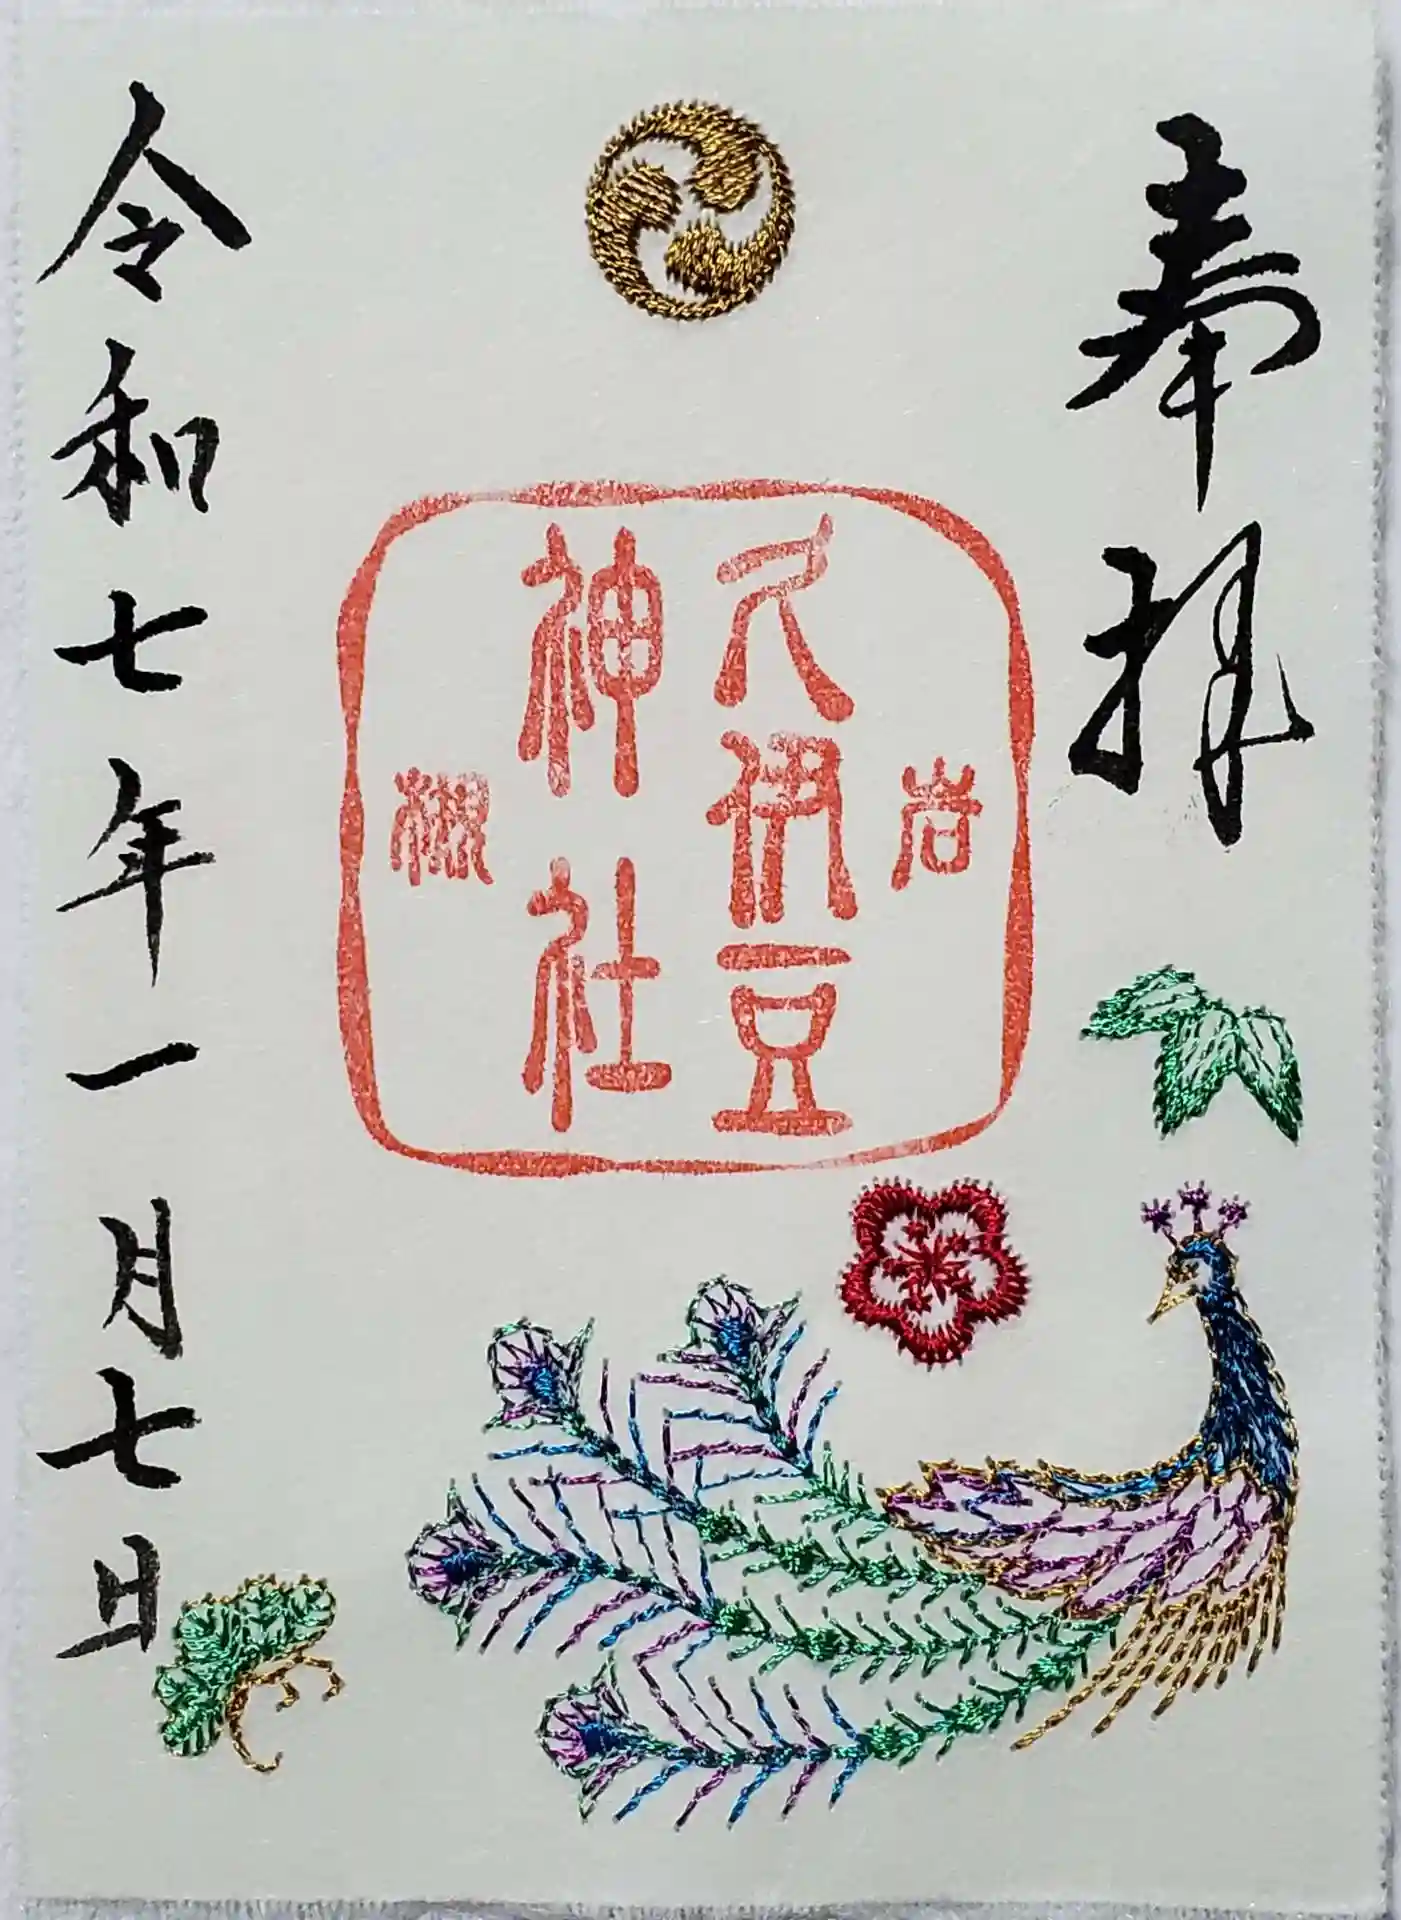 奉拝
岩
久伊豆
神社
槻
令和七年一月七日